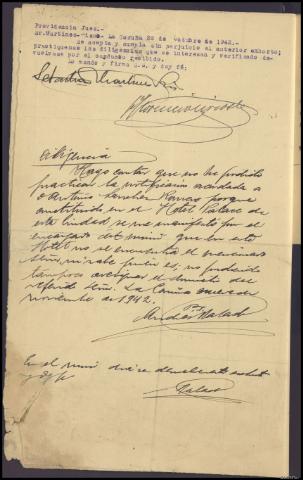 Providencia Juez.
Sr. Martinez La Coruña 28 de octubre de 1942.
Se acepta y cumpla sin perjuicio el anterior exhorto;
practiquense las diligencias que se interesan y verificado de-
vuelvase por el conducto recibido.
Lo mando y firma S.S. y doy fé.
Sebastian Martinez
Diligencia
Hago constar que no he podido
practicar la notificacion acordada a
D. Antonio Sanchez porque
constituido en el Hotel Palace de
esta Ciudad, se me manifestó por el
encargado del mismo que en este
Hotel no se encuentra el mencionado
Señor, ni sabe quien es, no pudiendo
tampoco averiguar el domicilio del
referido Señor. La Coruña once de
noviembre de 1942.
En el mismo dia se devuelve este exhorto
y doy fe